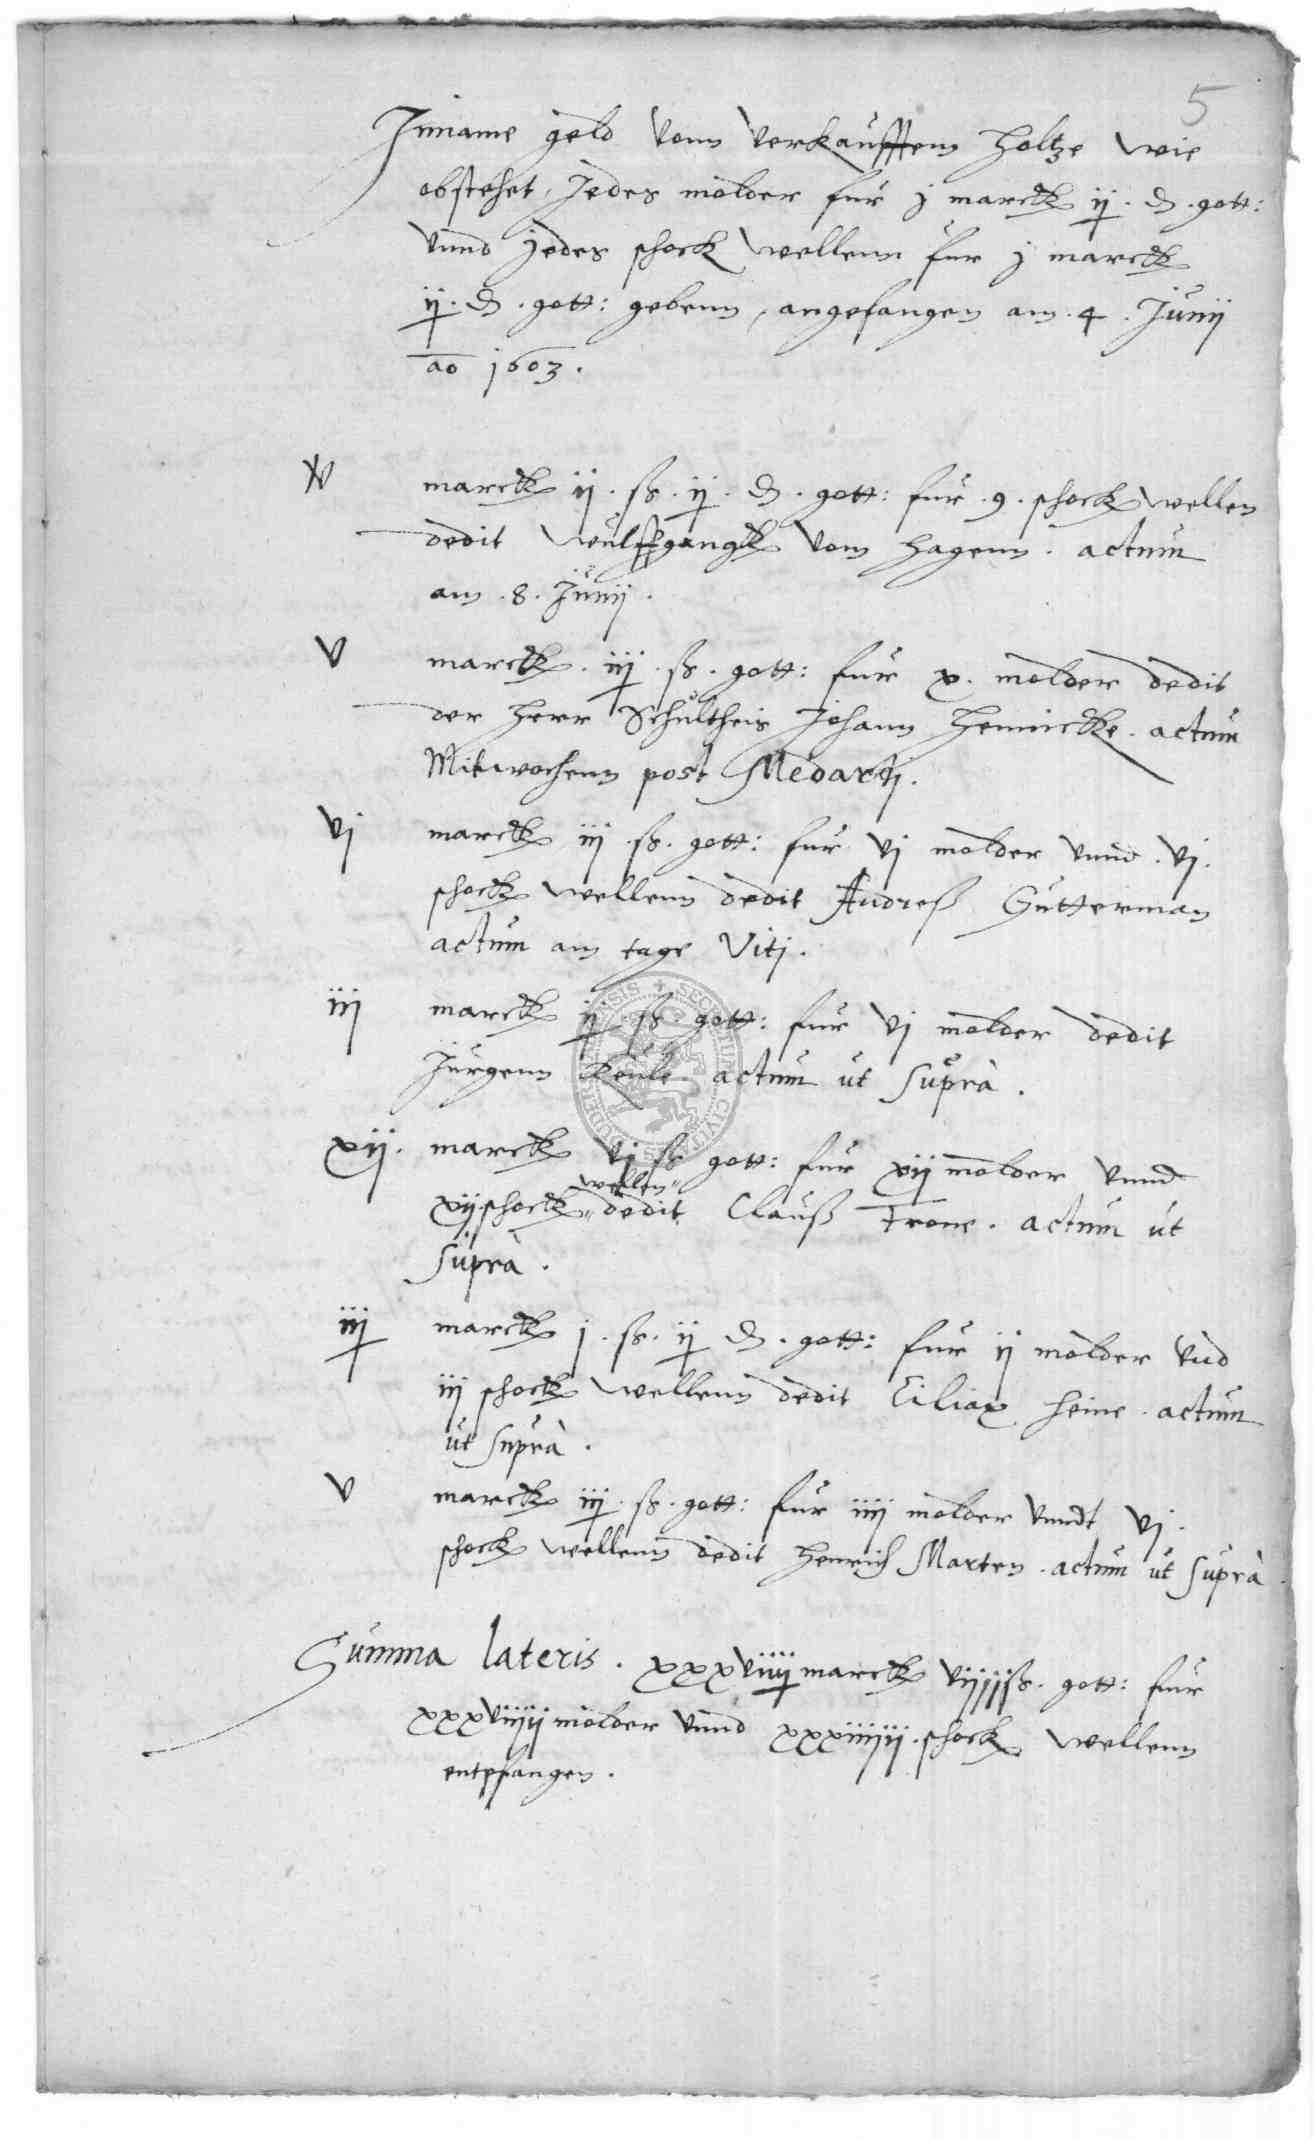 5
Inname geld vonn verkaufftem holtze wie
obstehet, Jedes molder fur j marck ij . d . gott:
vnnd jedes schock wellenn fur j marck
ij . d . gott: gebenn, angefangen am . 4 . Junij
ao 1603 .
marck ij . ß . ij . d . gott: fur . 9 . schock wellen
dedit Wulffgangk vom hagenn . actum
am . 8 . Junij .
V marck . iij . ß . gott: fur x . molder dedit
der herr Schultheis Johann Hennicke . actum
Mitwochenn post Medarij .
vj marck iij . ß . gott: fur vj molder vnnd . vj .
schock wellenn dedit Andreß Gutterman
actum am tage Viti .
iij marck ij ß gott: fur vj molder dedit
Jurgenn Keule actum ut supra .
xij . marck vj ß gott: fur xij molder vnnd
wellen
xij schock dedit Clauß Trone . actum ut
supra .
iij marck j . ß . ij d . gott: fur ij molder vnd
iij schock wellenn dedit Ciliax heine . actum
ut supra .
V marck iij . ß . gott: fur iiij molder vnndt vj .
schock wellenn dedit henrich Marten . actum ut supra
Summa lateris . xxxviiij marck viijjj ß . gott: fur
molder vnnd schock wellenn
entpfangen .